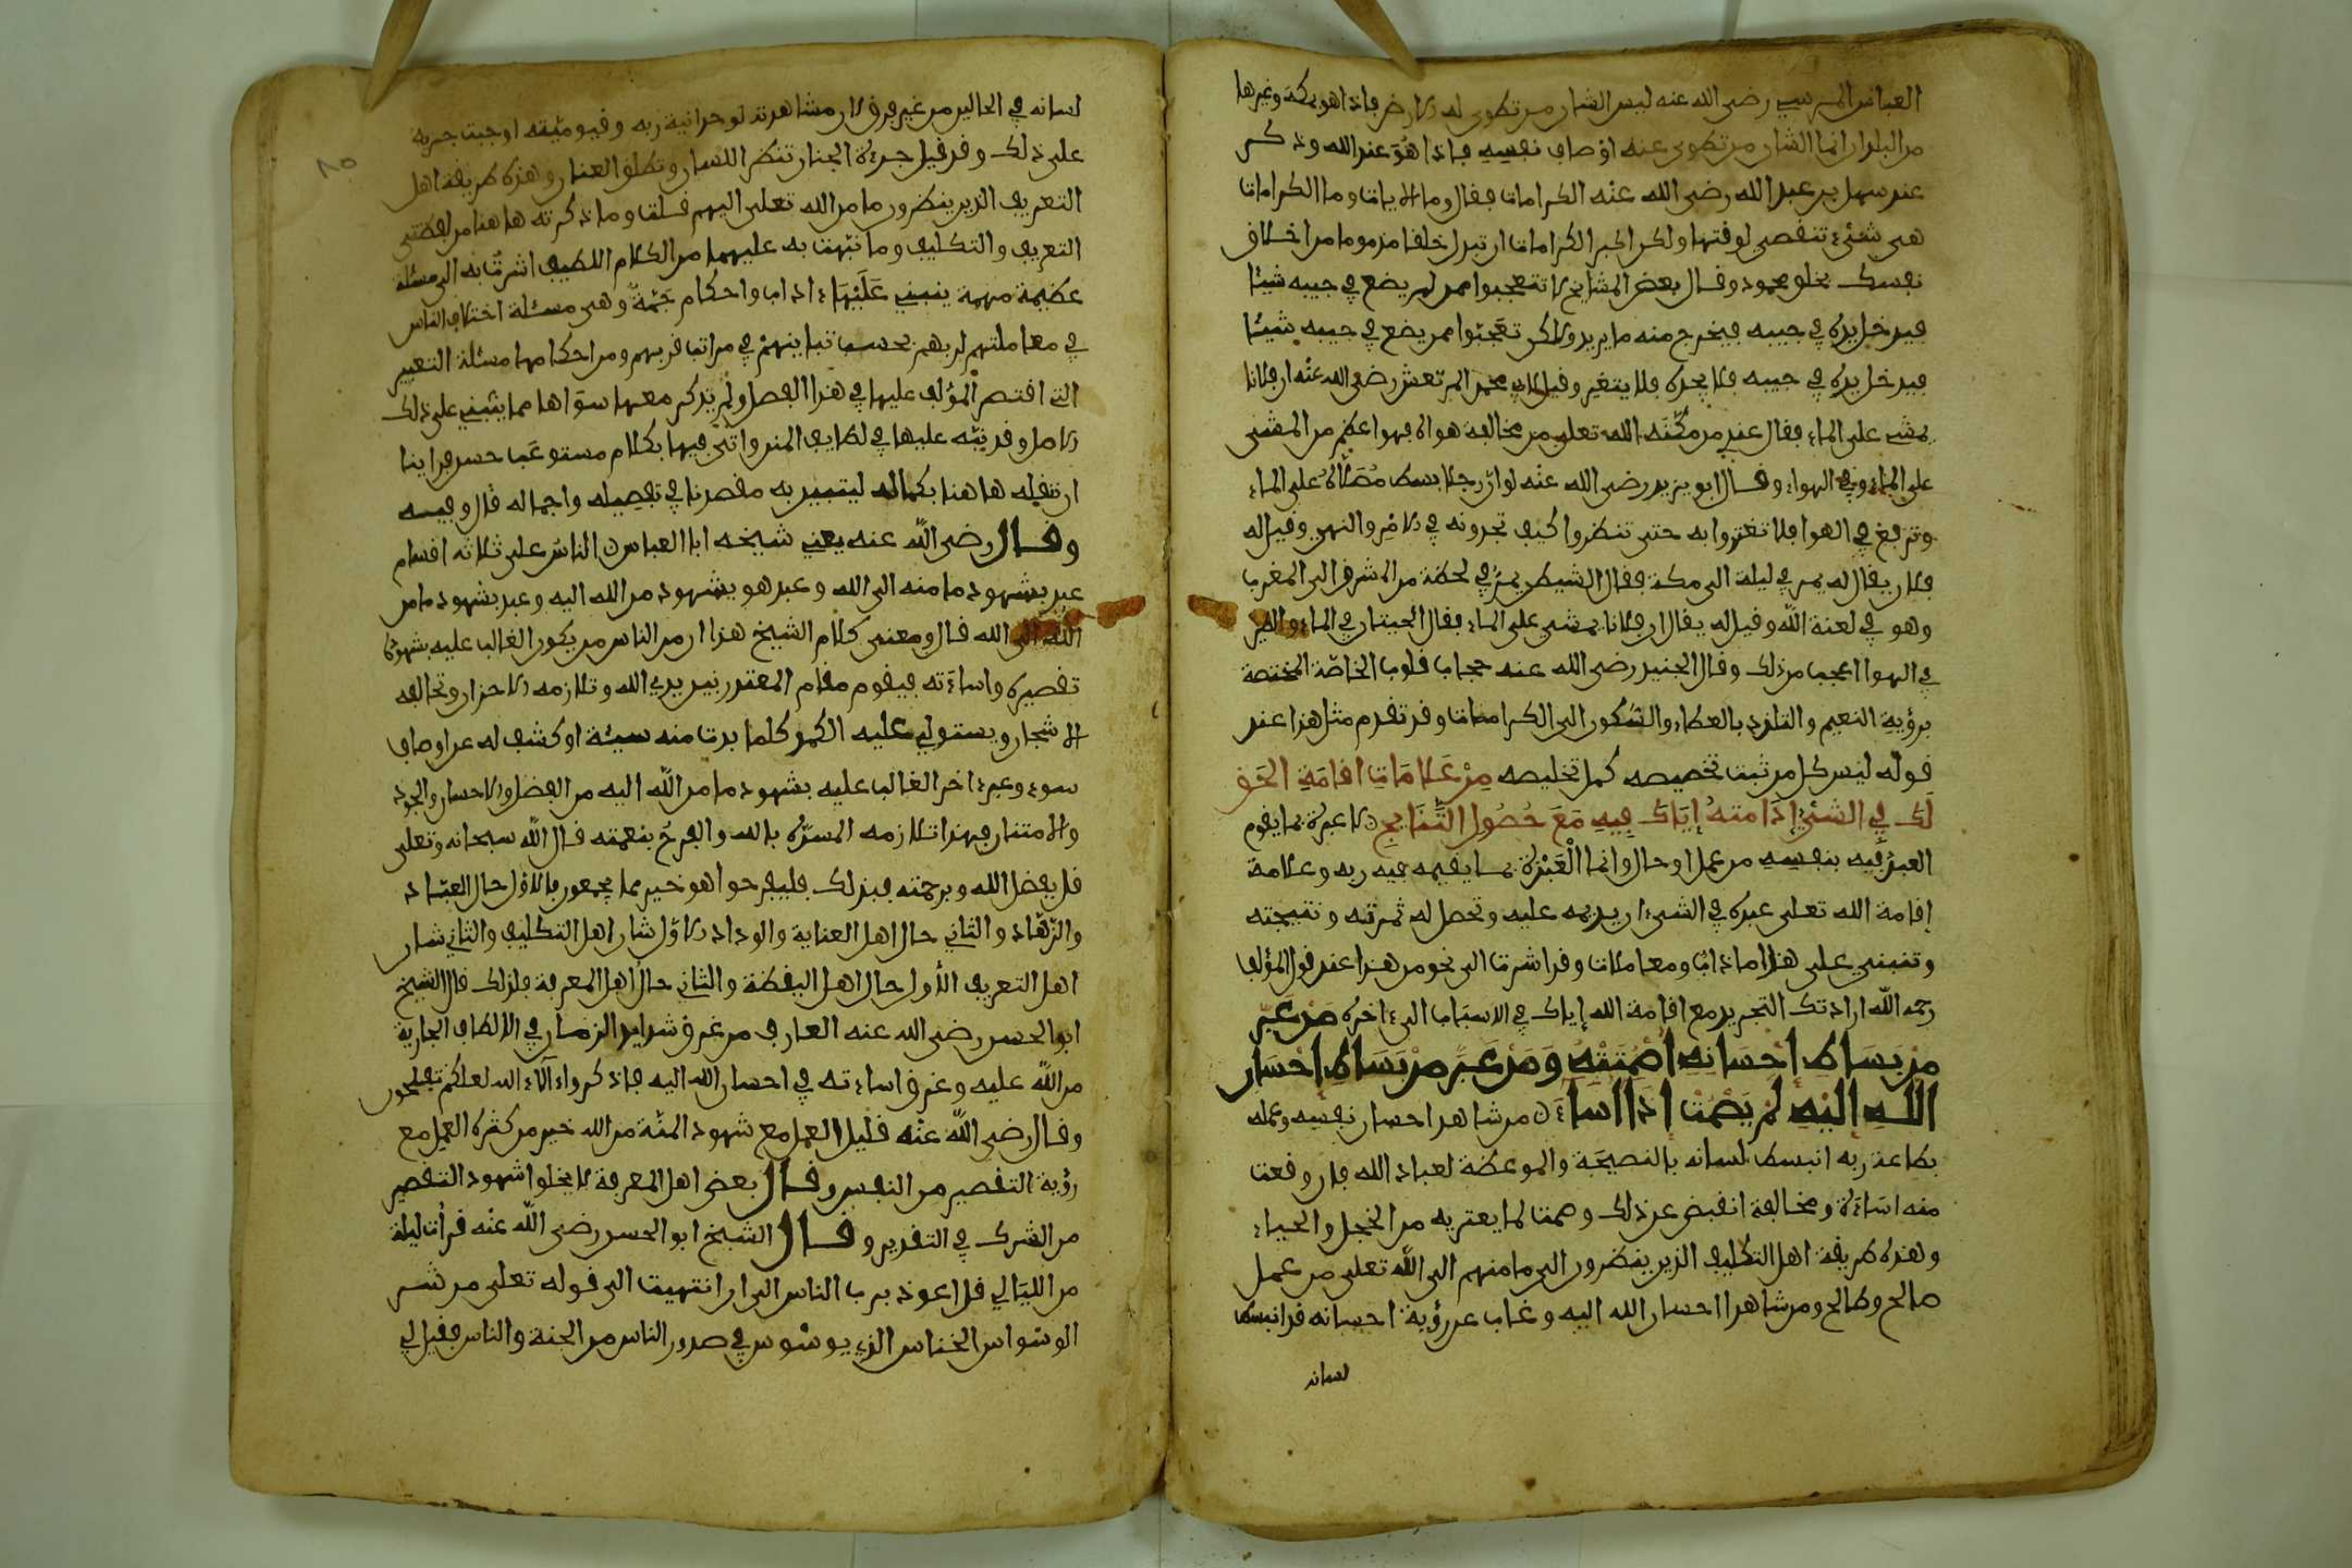 العباس المرسي رضى الله عنه ليس الشان من تطوى له الارض فاذا هو بمكة وغيرها
من البلدان انما الشان من تطوى عنه اوصاف نفسه فاذا هو عند الله وذكر
عند سهل بن عبد الله رضى الله عنه الكرامات فقال وما الايات وما الكرامات
هى شئ تنقضى لوقتها ولكن اكبر الكرامات ان تبدل خلقا مذموما من اخلاق
نفسك بخلق محمود وقال بعض المشايخ لا تتعجبوا ممن لم يضع في جيبه شيئا
فيدخل يده في جيبه فيخرج منه ما يريد ولاكن تعجبوا ممن يضع في جيبه شيئا
فيدخل يده في جيبه فلا يجده فلا يتغير وقيل لابي محمد المرتعش رضى الله عنه ان فلانا
يمشى على الماء فقال عندي من مكنه الله تعلى من مخالفة هواه فهو اعظم من المشى
على الماء وفي الهواء وقال ابو يزيد رضى الله عنه لو ان رجلا بسط مصلاه على الماء
وتربع في الهوا فلا تغتروا به حتى تنظروا كيف تجدونه في الامر والنهي وقيل له
فلان يقال له يمر في ليلة الى مكة فقال الشيطن يمر في لحظة من المشرق الى المغرب
وهو في لعنة الله وقيل له يقال ان فلانا يمشى على الماء فقال الحيتان في الماء والطير
في الهوا اعجب من ذلك وقال الجنيد رضى الله عنه حجاب قلوب الخاصة المختصة
برؤية النعيم والتلذذ بالعطاء والسكون الى الكرامات وقد تقدم مثل هذا عند
قوله ليس كل من ثبت تخصيصه كمل تخليصه من علامات اقامة الحق
لك في الشئ إدامته إياك فيه مع حصول النتايج ن لا عبرة بما يقوم
العبد فيه بنفسه من عمل او حال وانما العبرة بما يقيمه فيه ربه وعلامة
إقامة الله تعلى عبده في الشىء ان يديمه عليه وتحصل له ثمرته ونتيجته
وتنبنى على هذا ءاداب ومعاملات وقد اشرت الى نحو من هذا عند قول المؤلف
رحمه الله ارادتك التجريد مع اقامة الله إياك في الاسباب الى ءاخره من عبر
من بساط احسانه اصمتته ومن عبر من بساط احسان
الله اليه لم يصمت اذا اساء ن من شاهد احسان نفسه وعمله
بطاعة ربه انبسط لسانه بالنصيحة والموعظة لعباد الله فان وقعت
منه اساءة ومخالفة انقبض عن ذلك وصمت لما يعتريه من الخجل والحياء
وهذه طريقة اهل التكليف الذين ينظرون الى ما منهم الى الله تعلى من عمل
صالح وطالح ومن شاهد احسان الله اليه وغاب عن رؤية احسانه قد انبسط
لسانه
لسانه في الحالين من غير فرق لان مشاهدته لوحدانية ربه وقيوميته اوجبت جريه
على ذلك وقد قيل جرءة الجنان تنطق اللسان وتطلق العنان وهذه طريقة اهل
التعريف الذين ينظرون ما من الله تعلى اليهم قلت وما ذكرته هاهنا من لفظتى
التعريف والتكليف وما نبهت به عليهما من الكلام اللطيف اشرت به الى مسئلة
عظيمة مهمة ينبني عليها ءاداب واحكام جمة وهى مسئلة اختلاف الناس
في معاملتهم لربهم بحسب تباينهم في مراتب قربهم ومن احكامها مسئلة التعبير
التي اقتصر المؤلف عليها في هذا الفصل ولم يذكر معها سواها مما ينبني على ذلك
الاصل وقد نبه عليها في لطايف المنن واتى فيها بكلام مستوعب حسن فراينا
ان ننقله هاهنا بكماله ليتبين به مقصدنا في تفصيله واجماله قال وفيه
وقال رضى الله عنه يعني شيخه ابا العباس ن الناس على ثلاثة اقسام
عبد بشهود ما منه الى الله وعبد هو بشهود من الله اليه وعبد بشهود ما من
الله الى الله قال ومعنى كلام الشيخ هذا ان من الناس من يكون الغالب عليه بشهود
تقصيره واساءته فيقوم مقام المعتذر بين يدي الله وتلازمه الاحزان وتحالفه
الاشجان ويستولي عليه الكمد كلما بدت منه سيئة او كشف له عن اوصاف
سوء وعبد ءاخر الغالب عليه بشهود ما من الله اليه من الفضل والاحسان والجود
والامتنان فهذا تلازمه المسرة بالله والفرح بنعمته قال الله سبحانه وتعلى
قل بفضل الله وبرحمته فبذلك فليفرحوا هو خير مما يجمعون فالاول حال العباد
والزهاد والثاني حال اهل العناية والوداد الاول شان اهل التكليف والثاني شان
اهل التعريف الأول حال اهل اليقظة والثاني حال اهل المعرفة فلذلك قال الشيخ
ابو الحسن رضى الله عنه العارف من غرق شدايد الزمان في الالطاف الجارية
من الله عليه وغرق اساءته في احسان الله اليه فاذكروا ءالاء الله لعلكم تفلحون
وقال رضى الله عنه قليل العمل مع شهود المنة من الله خير من كثرة العمل مع
رؤية التقصير من النفس وقال بعض اهل المعرفة لا يخلوا شهود التقصير
من الشرك في التقدير وقال الشيخ ابو الحسن رضى الله عنه قرأت ليلة
من الليالي قل اعوذ برب الناس الى ان انتهيت الى قوله تعلى من شر
الوسواس الخناس الذي يوسوس في صدور الناس من الجنة والناس فقيل لي